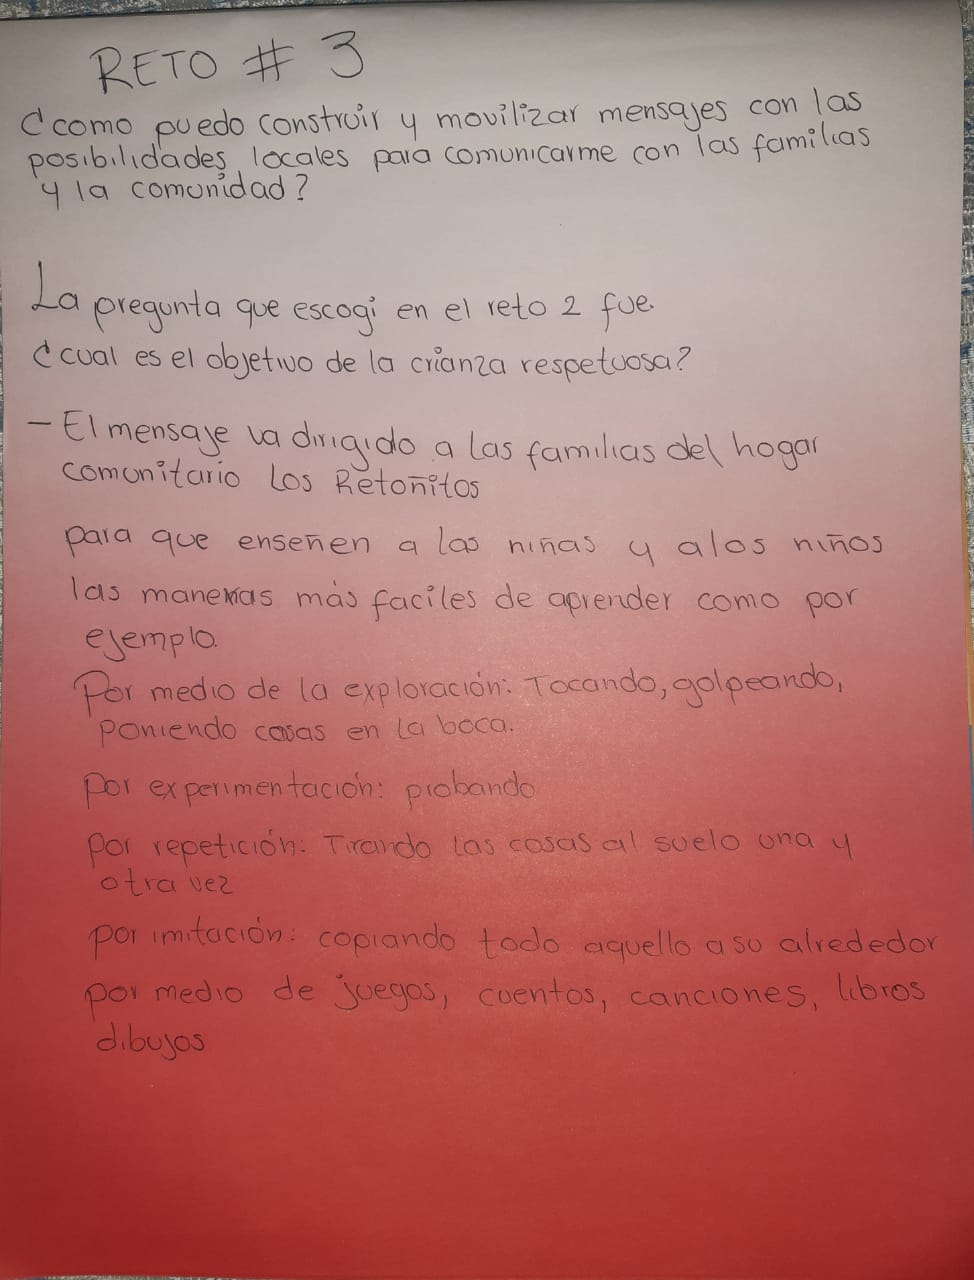 RETO # 3
¿como puedo construir y movilizar mensajes con las
posibilidades locales para comunicarme con las familias
y la comunidad?
La pregunta que escogi en el reto 2 fue.
¿cual es el objetivo de la crianza respetuosa?
- El mensaje va dirigido a las familias del hogar
comunitario Los Retoñitos
para que enseñen a las niñas y alos niños
las maneras más faciles de aprender como por
ejemplo.
Por medio de la exploración: Tocando, golpeando,
poniendo cosas en la boca.
por experimentación: probando
por repetición: Tirando las cosas al suelo una y
otra vez
por imitación: copiando todo aquello a su alrededor
por medio de juegos, cuentos, canciones, libros
dibujos